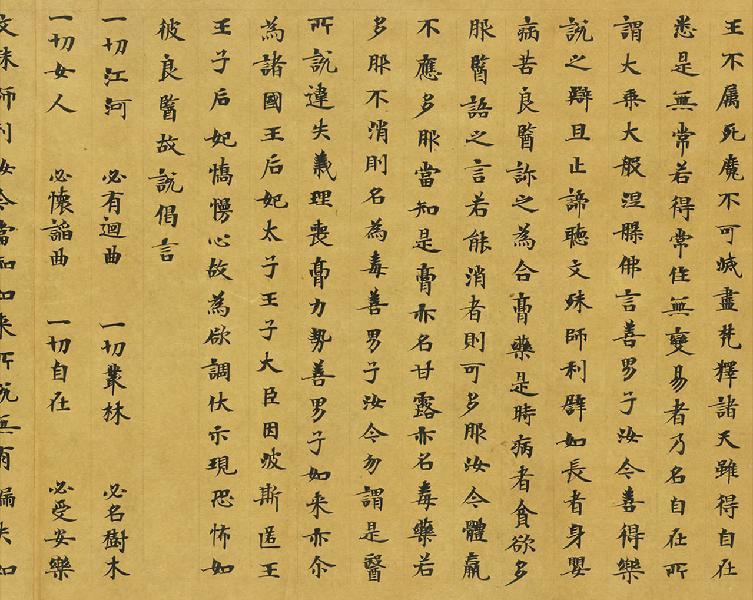 王不属死魔不可滅盡梵釋諸天雖得自在
悉是無常若得常住無變易者乃名自在所
謂大乘大般涅槃佛言善男子汝今善得樂
說之辯且止諦聽文殊師利譬如長者身嬰
病苦良醫診之為合膏藥是時病者貪欲多
服醫語之言若能消者則可多服汝今體羸
不應多服當知是膏亦名甘露亦名毒藥若
多服不消則名為毒善男子汝今勿謂是醫
所說違失義理喪膏力勢善男子如来亦尒
為諸國王后妃太子王子大臣因波斯匿王
王子后妃憍慢心故為欲調伏示現恐怖如
彼良醫故說偈言
一切江河 必有迴曲 一切叢林 必名樹木
一切女人 必懷諂曲 一切自在 必受安樂
文殊師利汝今當知如来所說無有漏失如